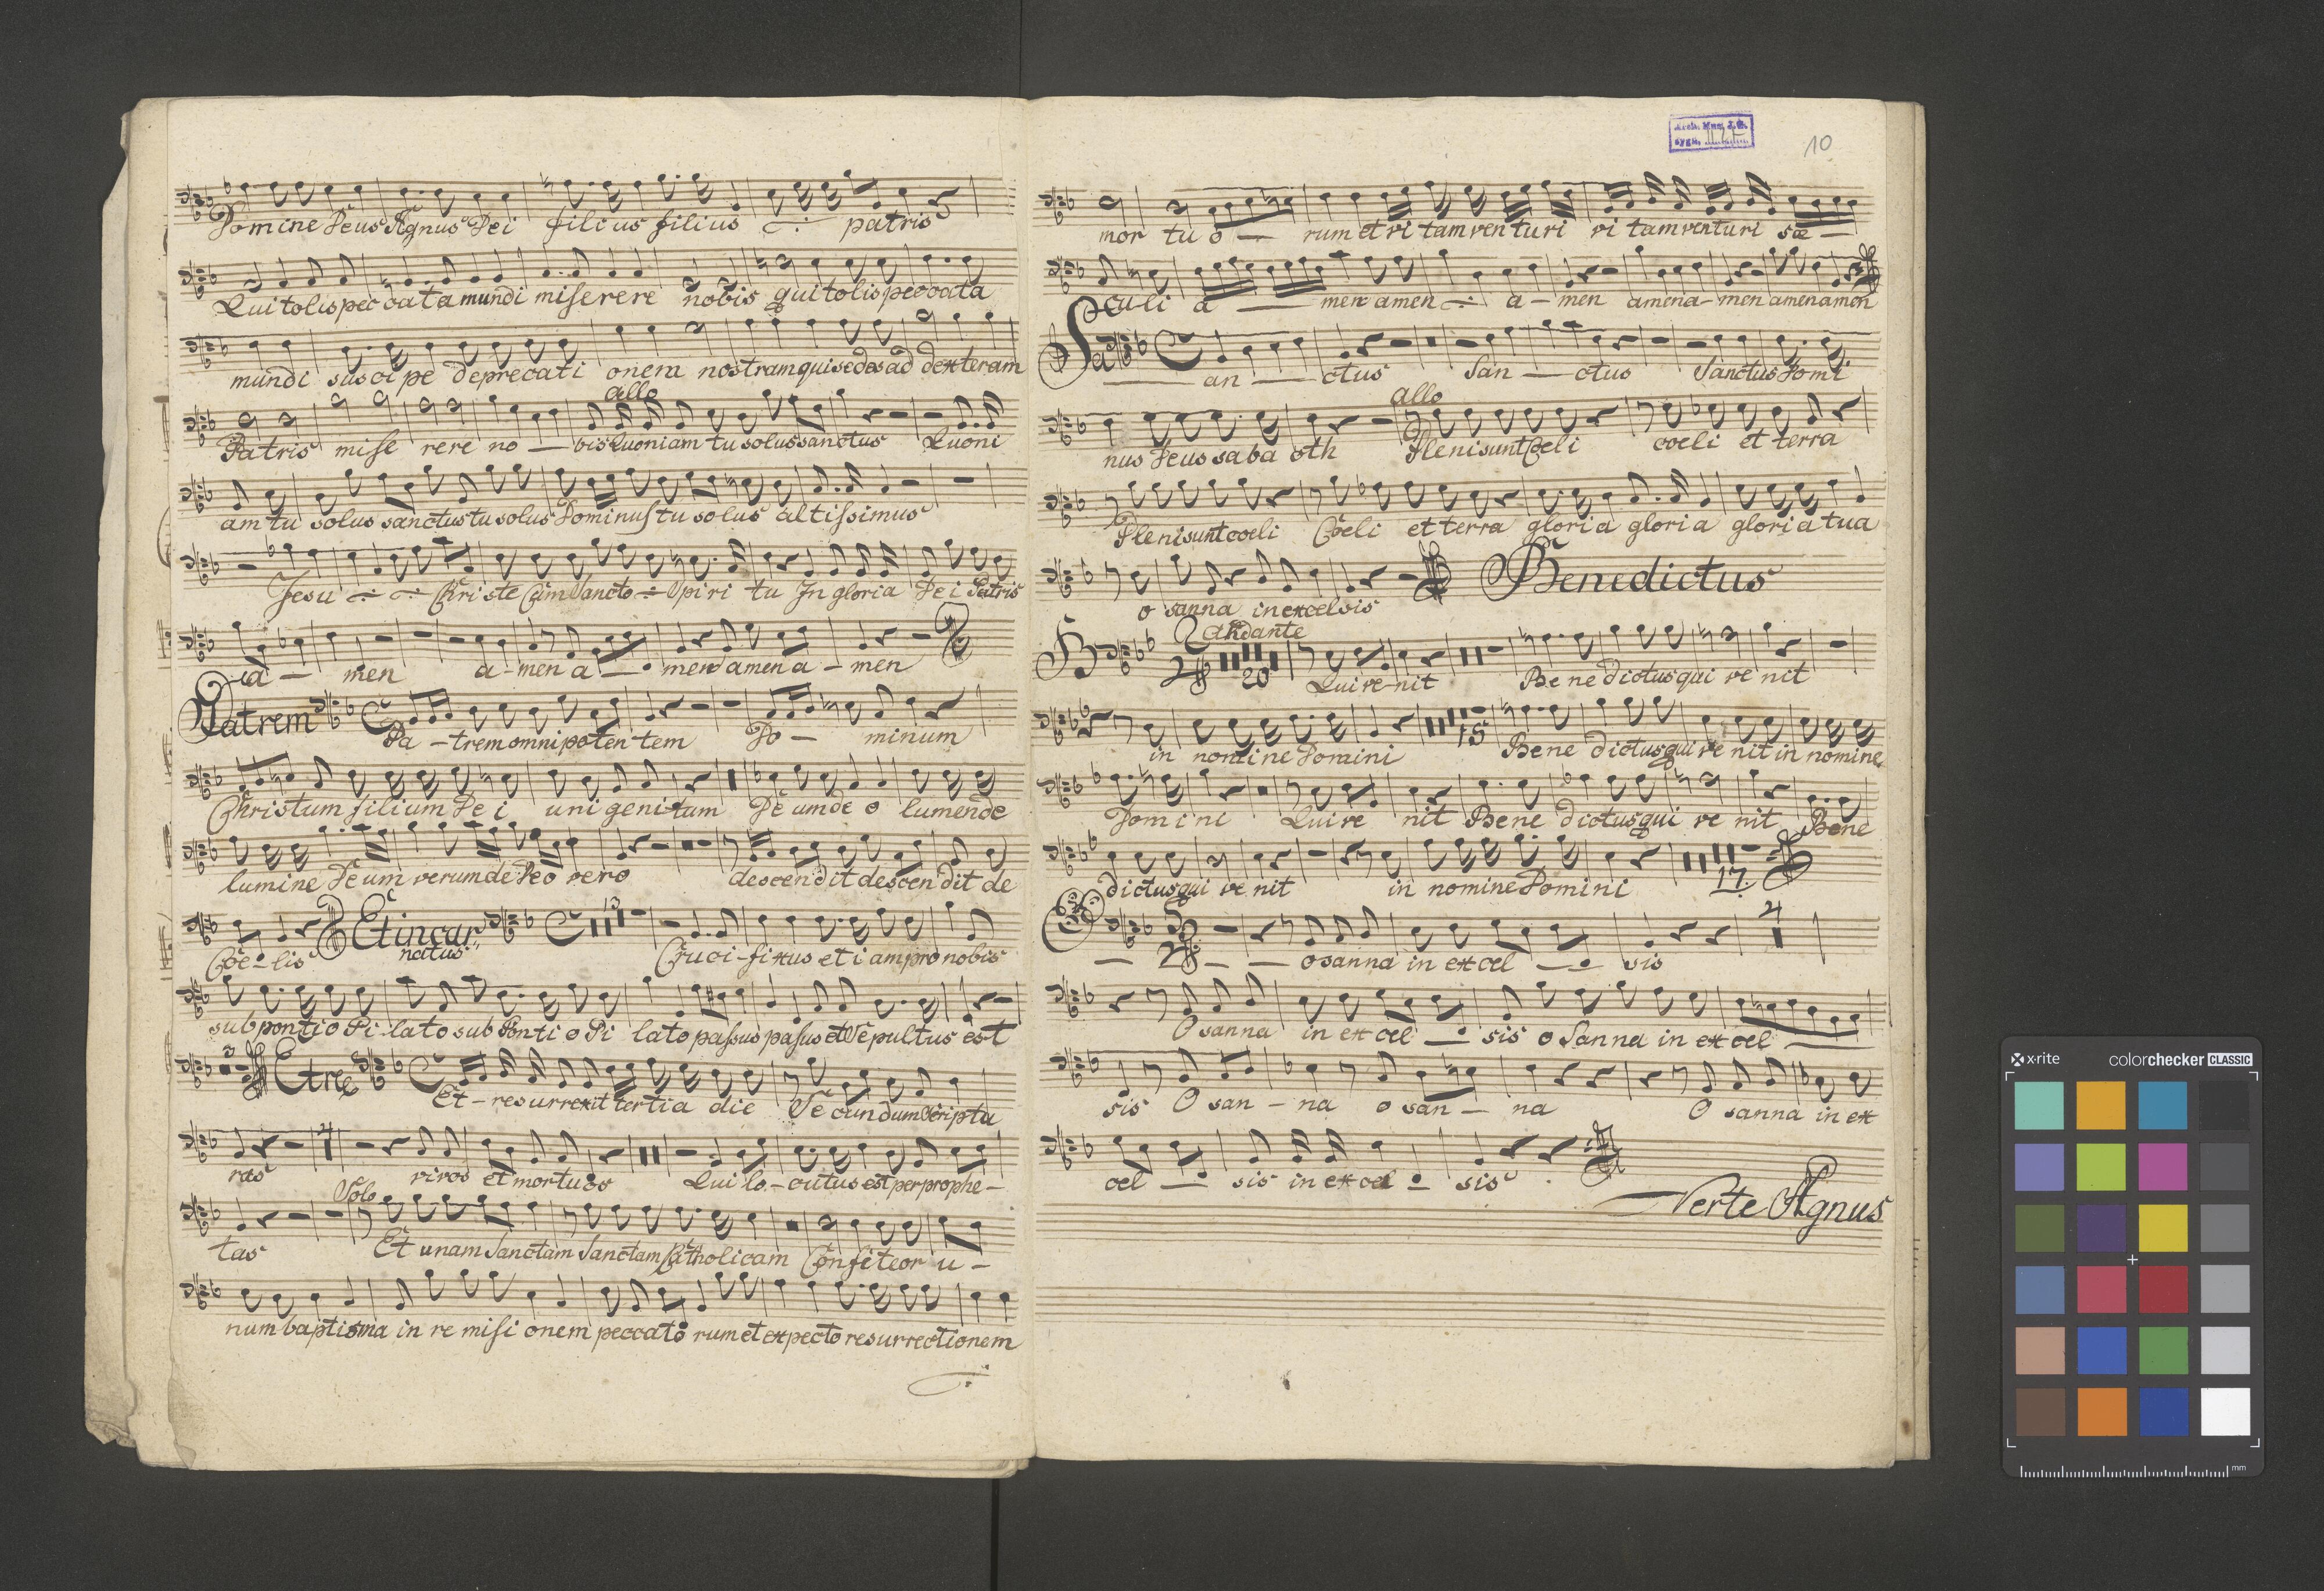 Domine Deus Agnus Dei filius filius patris
Qui tolis peccata mundi miserere nobis qui tolis peccata
mundi suscipe deprecati onem nostram qui sedes ad dexteram
allo
Patris mise rere no — bis Quoniam tu solus sanctus Quoni
am tu solus sanctus tu solus Dominus tu solus altissimus
Jesu Christe Cum Sancto Spiri tu In gloria Dei Patris
a — men a - men a — men amen a - men
Patrem
Pa - trem omnipoten tem Do — minum
Christum filium De i uni genitum De um de o lumen de
lumine Deum verum de Deo vero descendit descen dit de
Coe - lis Et incar natus 13 Cruci - fixus et i am pro nobis
sub pontio Pi lato sub Ponti o Pi lato passus passus et Sepultus est
3 Et re
Et - resurrexit tertia die Se cundum Scriptu
ras vivos et mortuos Qui lo - cutus est per prophe -
Solo
tas Et unam Sanctam Sanctam Catholicam Confiteor u -
num baptisma in re misi onem peccato rum et expecto resurrectionem
Arch. Mus. J. G.
sygn.
10
mor tu o — rum et vi tam ven turi vi tam venturi sæ —
culi a — men amen a - men amen a - men amen amen
San
an — ctus San — ctus Sanctus Domi
allo
nus Deus saba oth Pleni sunt Coeli coeli et terra
Pleni sunt coeli Coeli et terra gloria gloria gloria tua
Benedictus
o sanna in excelsis
andante
B 2 20 Qui ve - nit Be ne dictus qui ve nit
in nomine Domini 15 Bene dictus qui ve nit in nomine
Domini Qui ve nit Bene dictus qui ve nit Bene
dictus qui ve nit in nomine Domini 17.
O 3 2 osanna in excel — sis
O sanna in ex cel — sis o Sanna in ex cel
sis O san - na o san - na O sanna in ex
cel — sis in ex cel - sis
Verte Agnus
x-rite colorchecker CLASSIC
mm